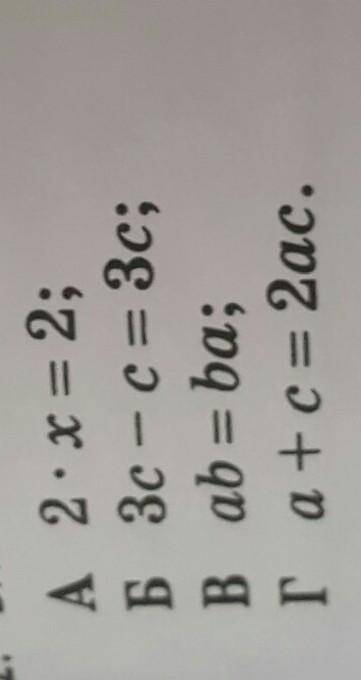 А 2 · x = 2;
Б 3c − c = 3c;
В ab = ba;
Г a + c = 2ac.